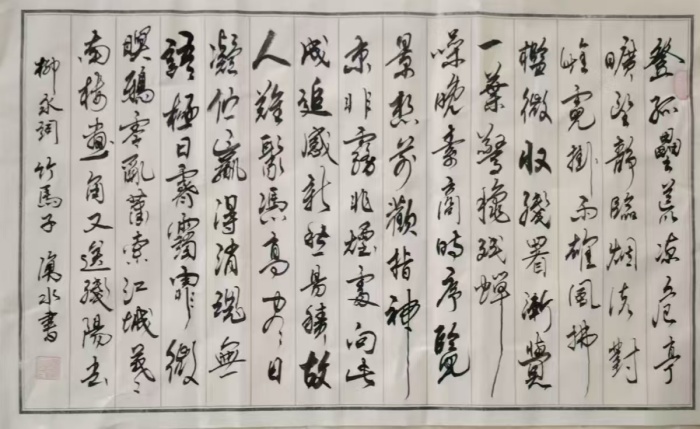 登孤壘荒凉危亭
曠望静临烟渚對
雌霓掛雨雄風拂
槛微收殘暑漸覺
一葉驚穐残蝉
噪晚素商時序覽
景想前歡指神
京非霧非煙處向此
成追感新愁易積故
人難聚憑高尽日
凝伫贏得消魂無
語極目霽靄霏微
暝鴉零亂蕭索江城暮
南楼畫角又送殘陽去
柳永词 竹馬子 水書